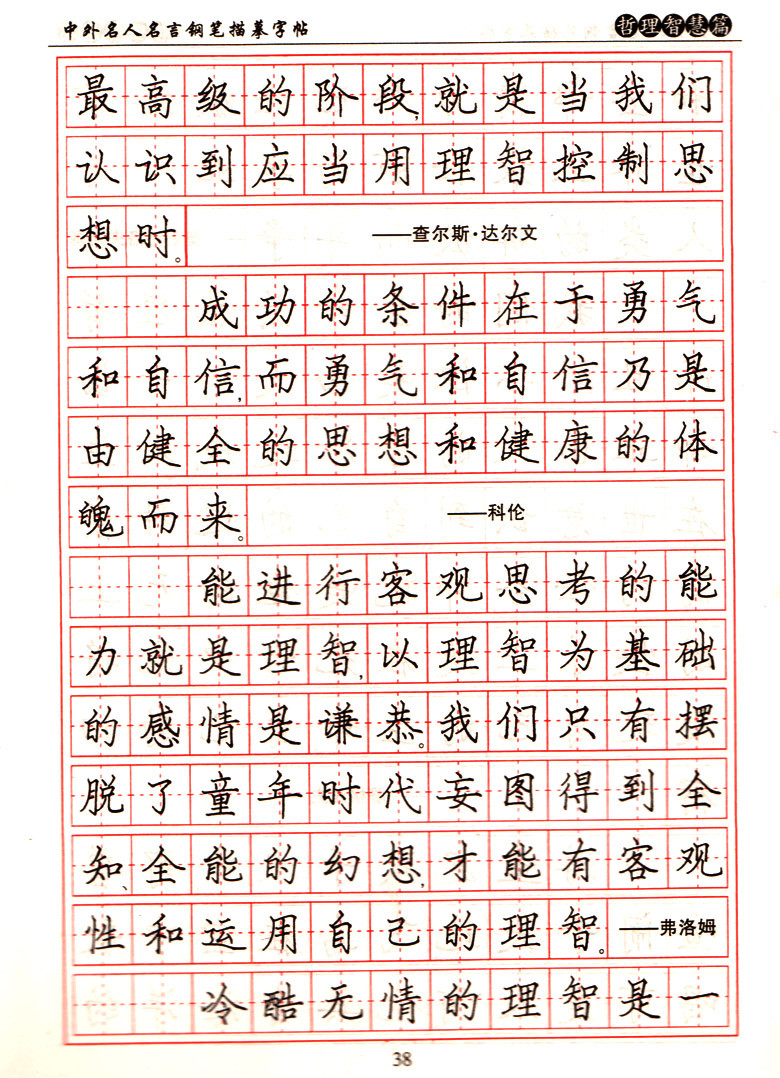 中外名人名言钢笔描摹字帖 哲理智慧篇
最高级的阶段,就是当我们
认识到应当用理智控制思
想时。 ——查尔斯·达尔文
成功的条件在于勇气
和自信,而勇气和自信乃是
由健全的思想和健康的体
魄而来。 ——科伦
能进行客观思考的能
力就是理智,以理智为基础
的感情是谦恭。我们只有摆
脱了童年时代妄图得到全
知、全能的幻想,才能有客观
性和运用自己的理智。 ——弗洛姆
冷酷无情的理智是一
38